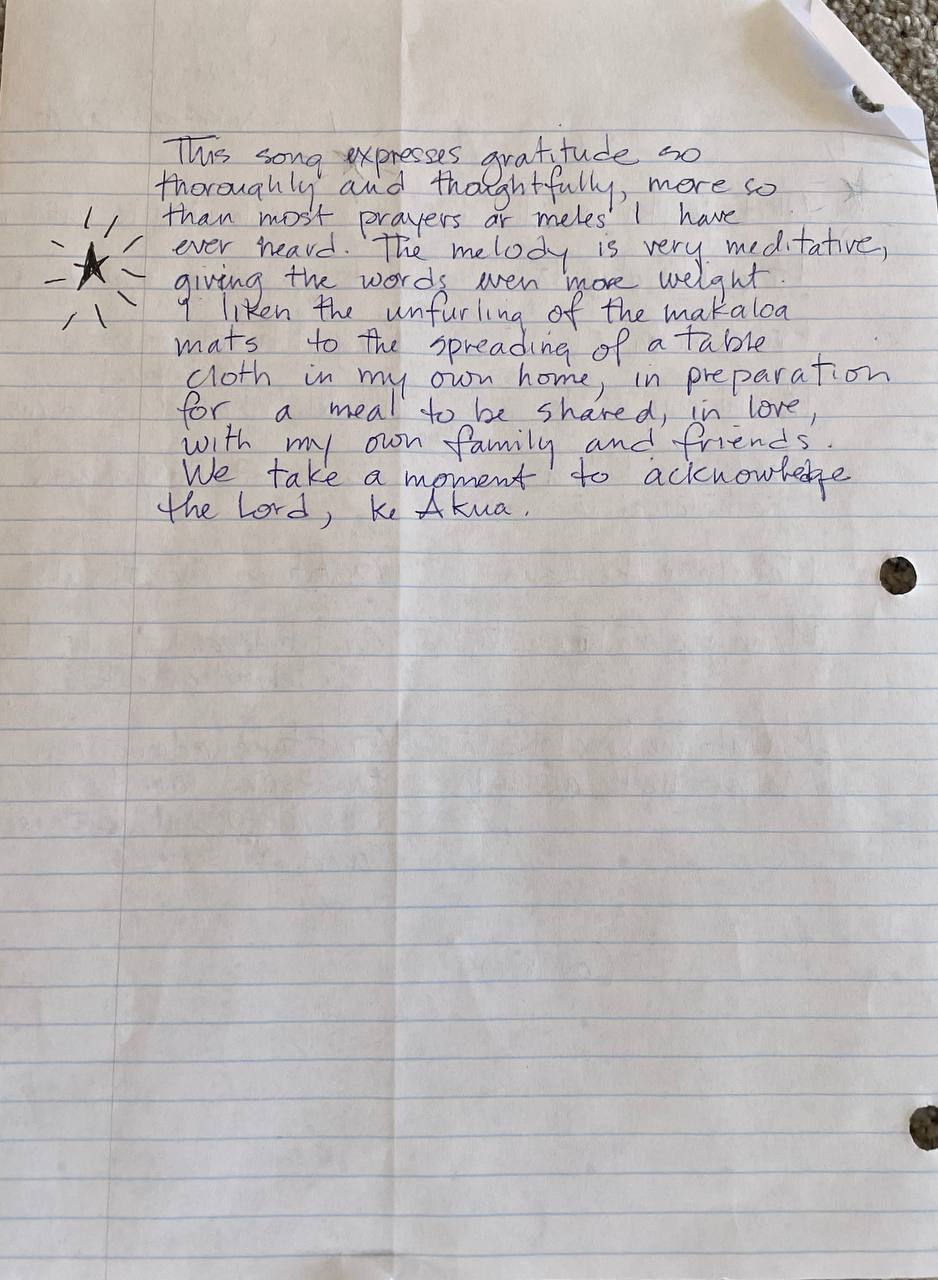 This song expresses gratitude so
thoroughly and thoughtfully, more so
than most prayers or meles I have
ever heard. The melody is very meditative,
giving the words even more weight.
I liken the unfurling of the makaloa
mats to the spreading of a table
cloth in my own home, in preparation
for a meal to be shared, in love,
with my own family and friends.
We take a moment to acknowledge
the Lord, ke Akua.